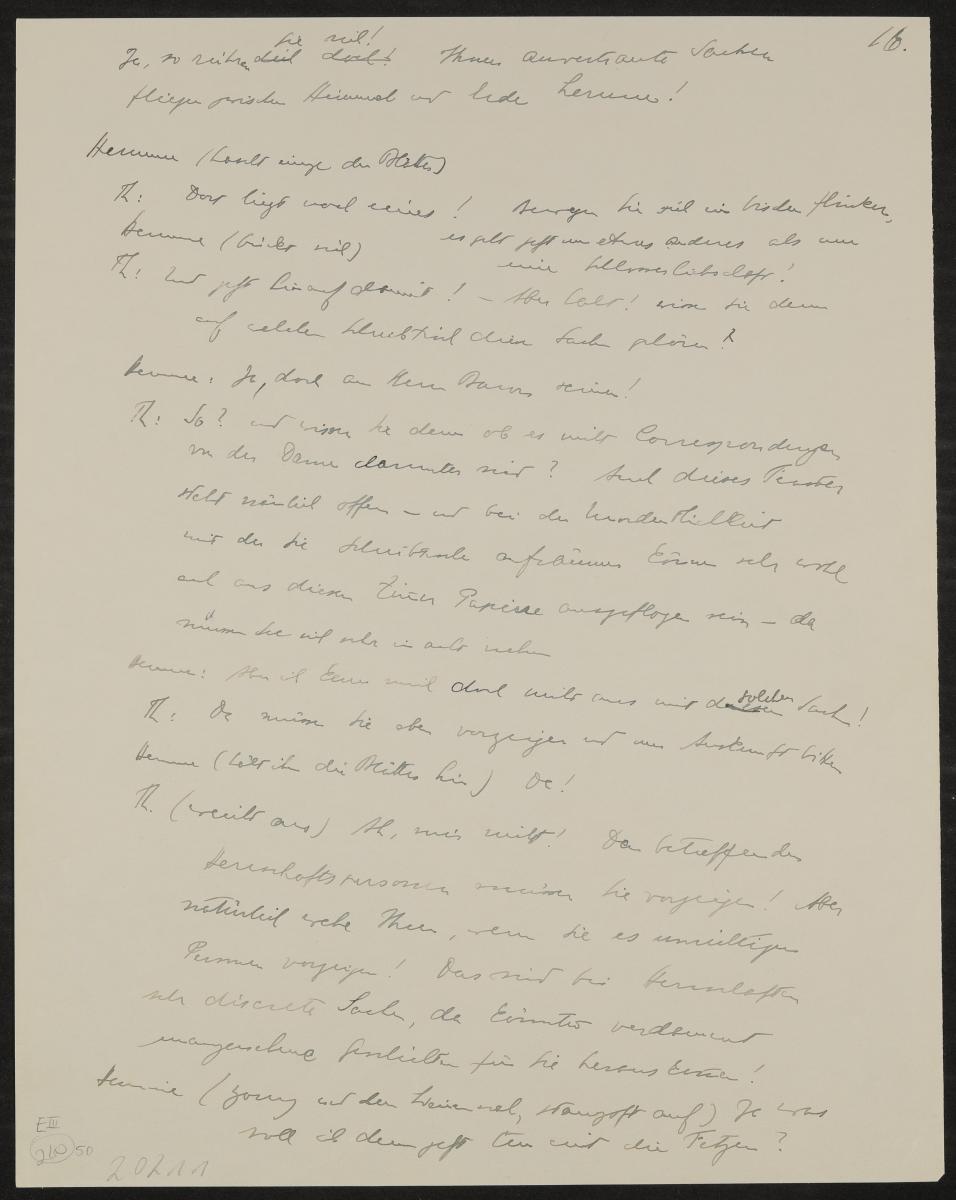 16.
Sie sich!
Ja, so rühren dich doch! Ihnen anvertraute Sachen
fliegen zwischen Himmel und Erde herum!
Hermine (holt einige der Blätter)
Th: Dort liegt noch eines! Bewegen Sie sich ein bischen flinker,
es geht jetzt um etwas anderes als um
Hermine (bückt sich)
eine Schlossliebschaft!
Th: Und jetzt hinauf damit! – Aber halt! wissen Sie denn
auf welchen Schreibtisch diese Sachen gehören?
Hermine: Ja, doch an Herrn Barons seinen!
Th: So? und wissen Sie denn ob es nicht Correspondenzen
von der Dame darunter sind? Auch dieses Fenster
steht nämlich offen – und bei der Unordentlichkeit
mit der Sie Schreibtische aufräumen können sehr wohl
auch aus diesem Zimmer Papiere ausgeflogen sein – da
müssen Sie sich sehr in acht nehmen
Hermine: Aber ich kenn mich doch nicht aus mit diesen
solchen Sachen!
Th: Da müssen Sie eben vorzeigen und um Auskunft bitten
Hermine (hält ihm die Blätter hin) Da!
Th. (weicht aus) Ah, mir nicht! Den betreffenden
Herrschaftspersonen müssen Sie vorzeigen! Aber
natürlich wehe Ihnen, wenn Sie es unrichtigen
Personen vorzeigen! Das sind bei Herrschaften
sehr discrete Sachen, da könnten verdammt
unangenehme Geschichten für Sie herauskommen!
Hermine (zornig und dem Weinen nah, stampft auf) Ja was
soll ich denn jetzt tun mit die Fetzen?
E III
210 50
20211